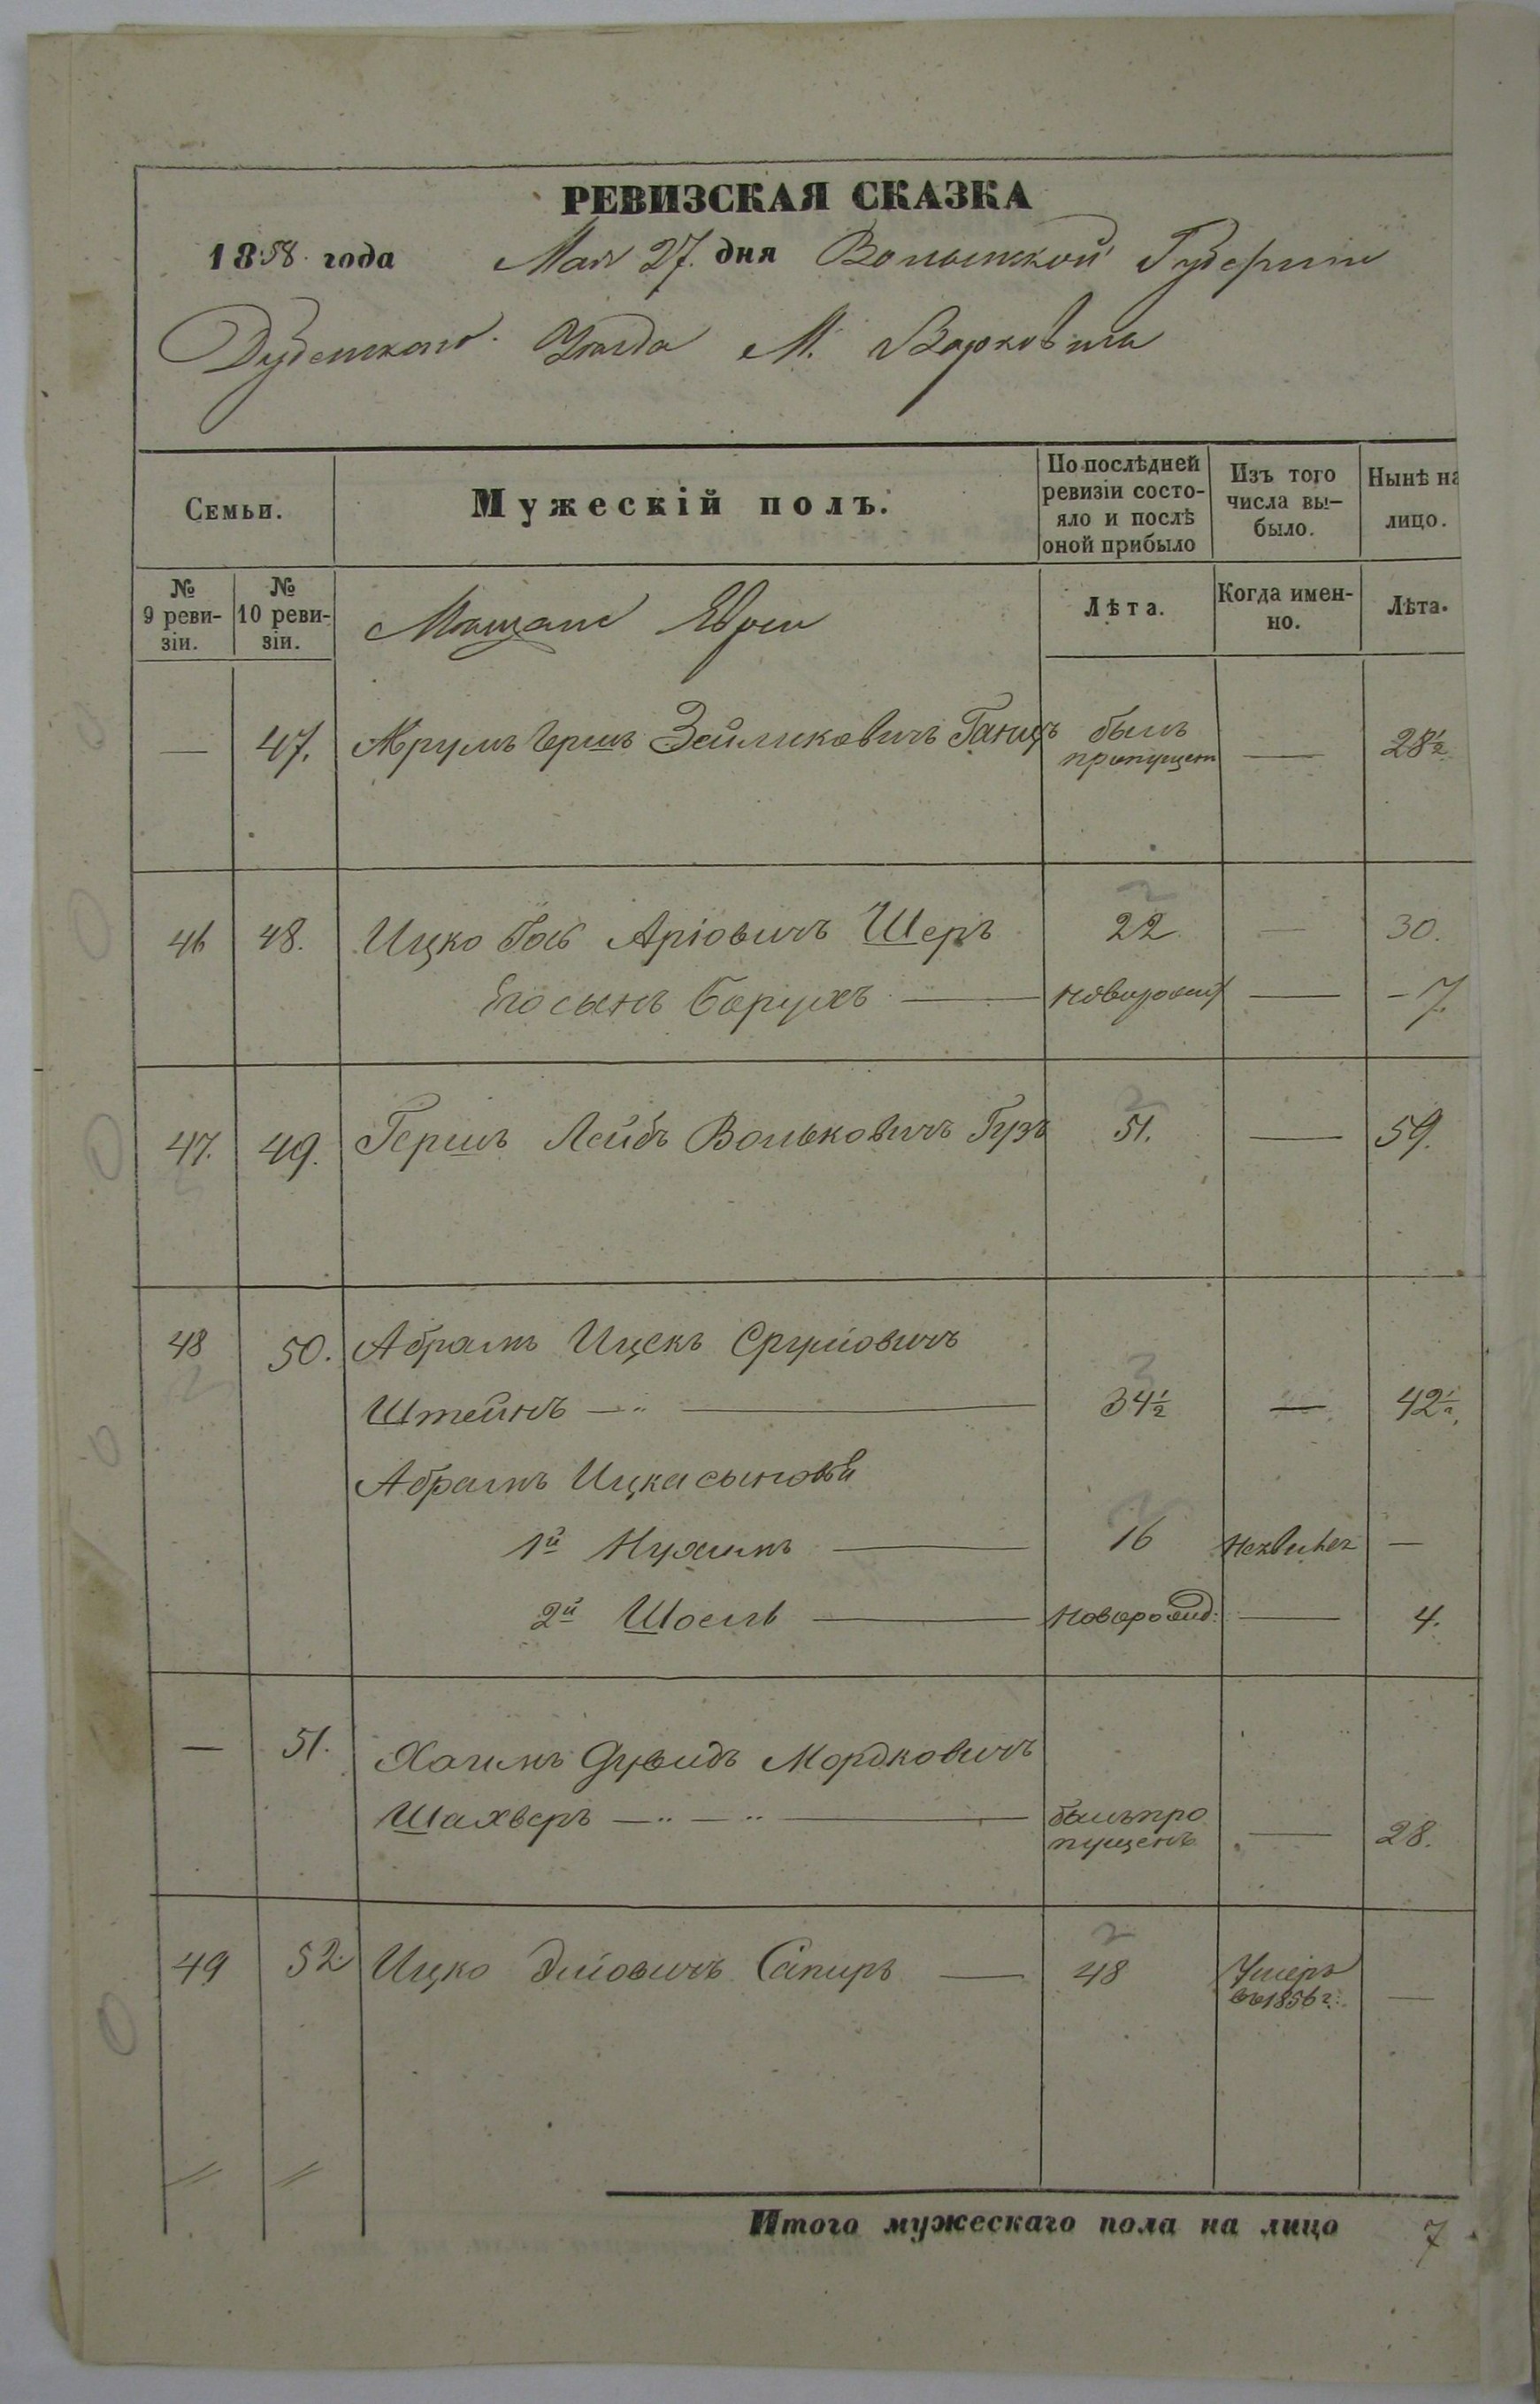 РЕВИЗСКАЯ СКАЗКА
1858 года Мая 27 дня Волынской Губернии
Дубенскаго Уѣзда М. Варковичъ
Семьи.
Мужескій полъ.
По послѣдней ревизіи состо-
яло и послѣ
оной прибыло
Изъ того
числа вы-
было.
Нынѣ на
лицо.
№
9 реви-
зіи.
№
10 реви-
зіи.
Мѣщане Евреи
Лѣта.
Когда имен-
но.
Лѣта.
— 47. Гершъ Зейликовичъ был — 28½
пропущен
46 48. Ицко Аріовичъ Шеръ 22 — 30.
Его сынъ Барухъ — новорожд — 7.
47. 49. Гершъ Лейбъ Вольковичъ Гузъ 51. — 59.
48 50. Абрамъ Ицекъ Сруліовичъ
Штейнъ — 34½ — 42½
Абрамъ Ицка сыновья
1й Нухимъ — 16 —
2й Шоель — новорожд: — 4.
— 51. Хаимъ Дувидъ Мордковичъ
Шахверъ — былъ про — 28.
пущенъ
49 52. Ицко Эліовичъ Сапиръ — 48 Умеръ —
въ 1856 г.
Итого мужескаго пола на лицо 7